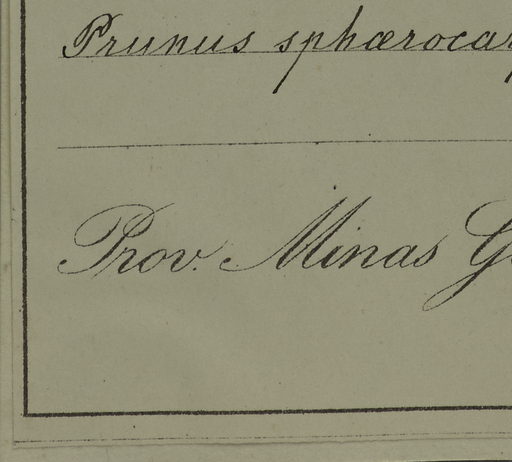 Prunus sphærocar
Prov. Minas G